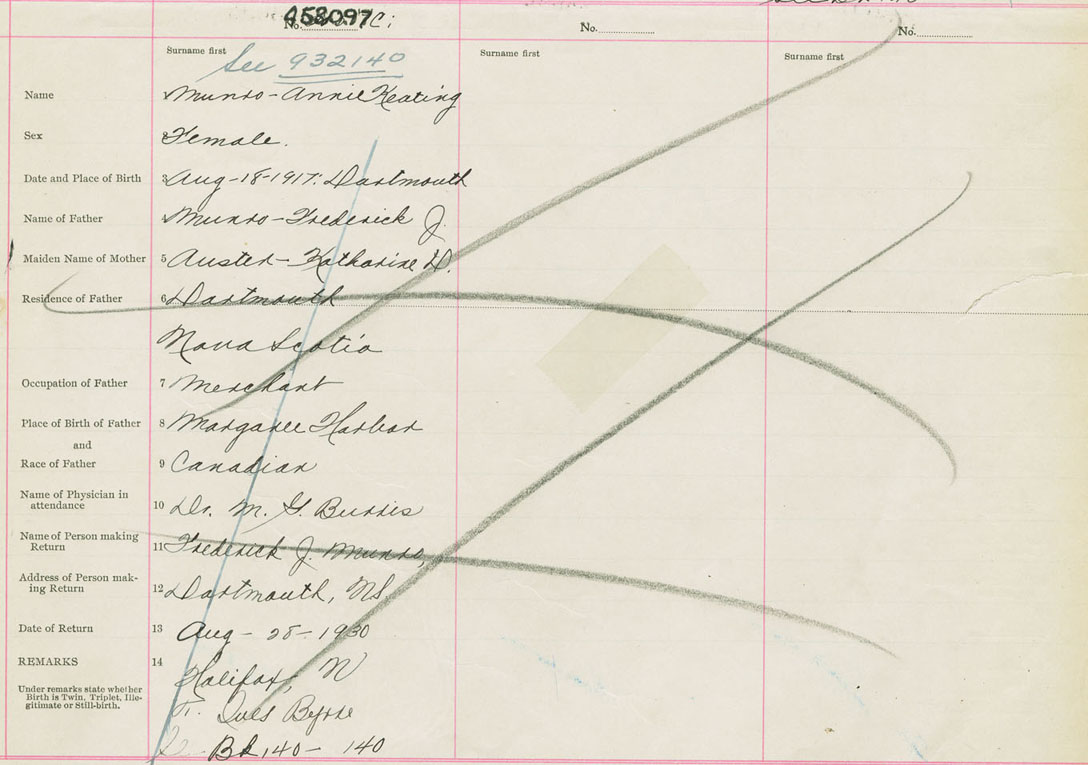 458097
No. C:
No.
No.
Surname first
Surname first
Surname first
See 932140
Name
Munro - Annie Keating
Sex
2 Female.
Date and Place of Birth
3 Aug-18-1917: Dartmouth
Name of Father
4 Munro - Frederick J.
Maiden Name of Mother
5 Auster - Katharine D.
Residence of Father
6 Dartmouth
Nova Scotia
Occupation of Father
7 Merchant
Place of Birth of Father
8 Margaree Harbor
and
Race of Father
9 Canadian
Name of Physician in
attendance
10 Dr. M. G. Burris
Name of Person making
Return
11 Frederick J. Munro,
Address of Person mak-
ing Return
12 Dartmouth, NS.
Date of Return
13 Aug - 28 - 1930
REMARKS
14 Halifax, N
Under remarks state whether
Birth is Twin, Triplet, Ille-
gitimate or Still-birth.
Byrne
Bk 140 - 140